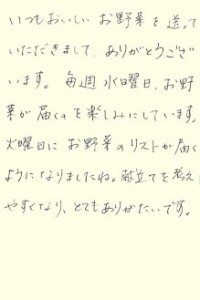 いつもおいしい お野菜 を 送って
いただきまして、ありがとうござ
います。 毎週 水曜日、お野
菜が届くのを楽しみにしています。
火曜日に お野菜のリストが届く
ようになりましたね。献立てを考え
やすくなり、とてもありがたいです。